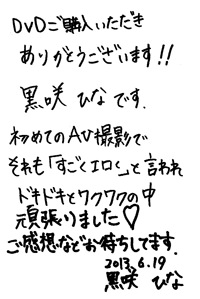 DVDご購入いただき
ありがとうございます!!
黒咲 ひなです.
初めてのAV撮影で
それも「すごくエロく」と言われ
ドキドキとワクワクの中
頑張りました♡
ご感想などお待ちしてます.
2013,6,19
黒咲 ひな